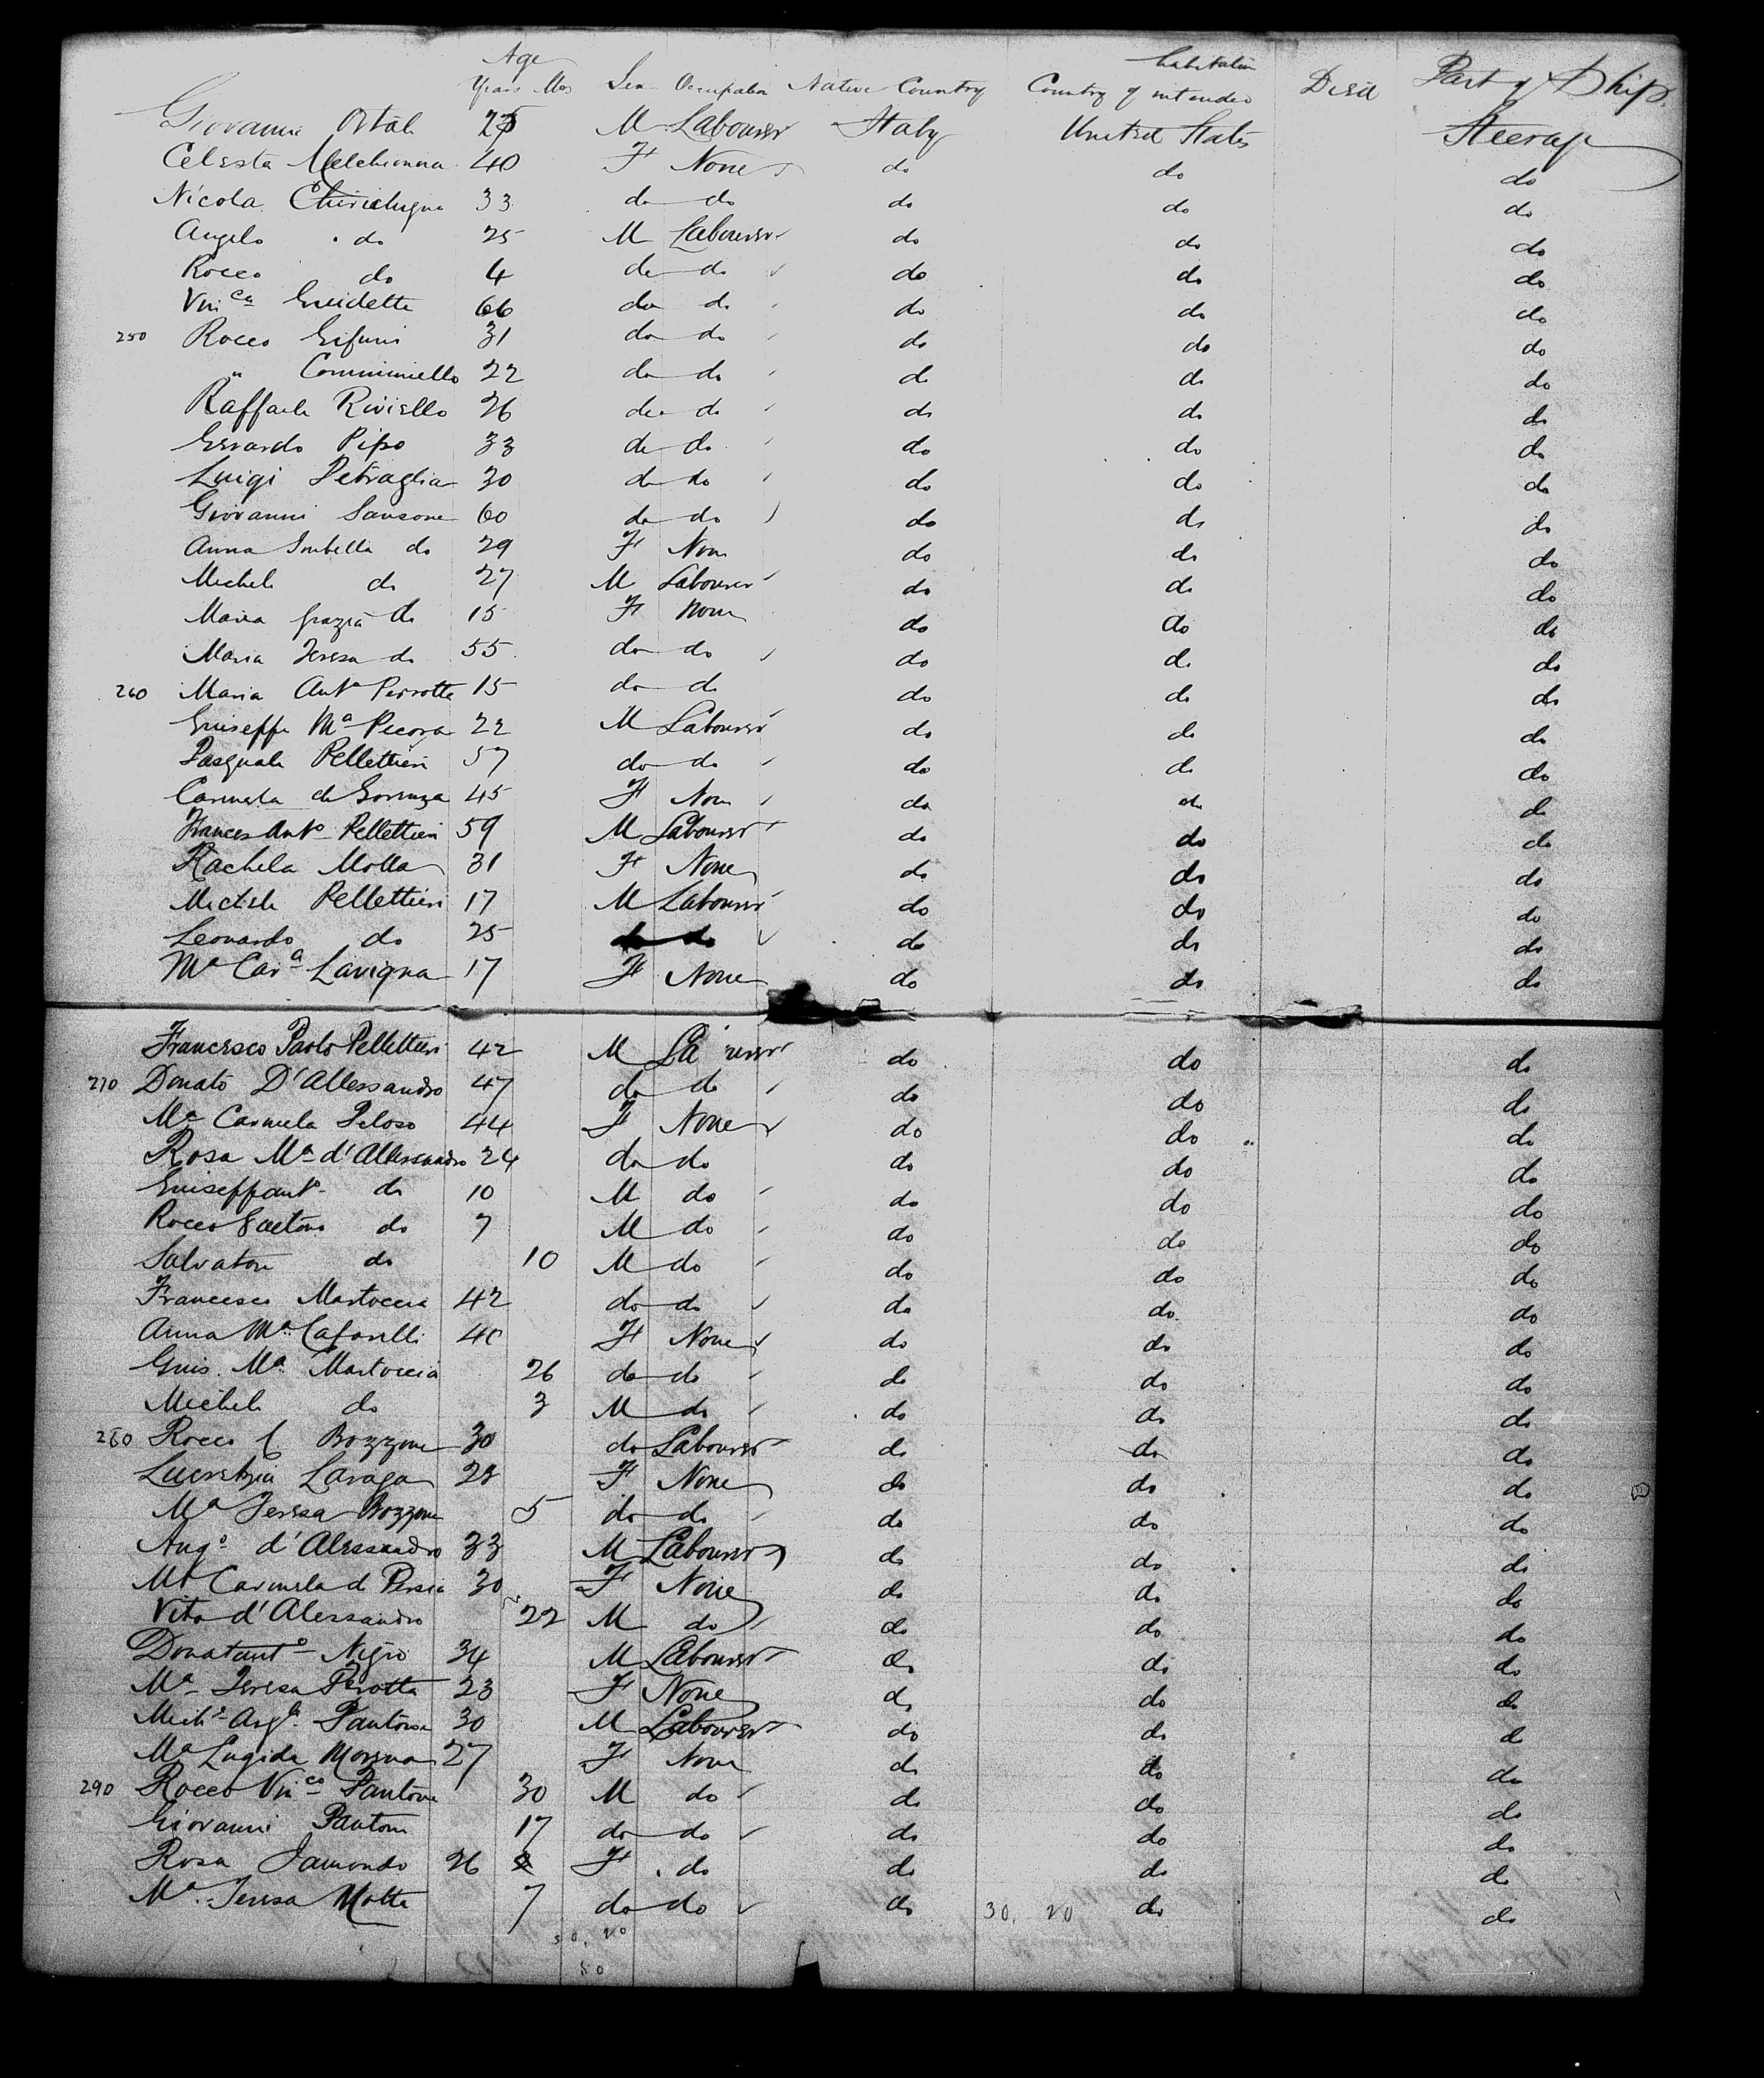 Age habitation
Years Mos Sex Occupation Native Country Country of intended Died Part of Ship
Giovanni Ortali 25 M Labourer Italy United States Steerage
Celesta Melchionna 40 F None do do do
Nicola Chirichigna 33 do do do do do
Angelo do 25 M Labourer do do do
Rocco do 4 do do do do do
Vin ca Guidette 66 do do do do do
250 Rocco Gifuni 31 do do do do do
" Comminiello 22 do do do do do
Raffaele Riviello 26 do do do do do
Gerardo Pipo 33 do do do do do
Luigi Petraglia 30 do do do do do
Giovanni Sansone 60 do do do do do
Anna Isabella do 29 F None do do do
Michele do 27 M Labourer do do do
Maria Grazia do 15 F None do do do
Maria Teresa do 55 do do do do do
260 Maria Anta Perrotta 15 do do do do do
Guiseppe Ma Pecora 22 M Labourer do do do
Pasquale Pellettieri 57 do do do do do
Carmela de Gorenza 45 F None do do do
Frances Anto Pellettieri 59 M Labourer do do do
Rachela Molla 31 F None do do do
Michele Pellettieri 17 M Labourer do do do
Leonardo do 25 do do do do do
Ma Cara Lavigna 17 F None do do do
Francesco Paolo Pellettieri 42 M La urer do do do
270 Donato D'Allessandro 47 do do do do do
Ma Carmela Peloso 44 F None do do do
Rosa Ma d'Allessandro 24 do do do do do
Guiseppant do 10 M do do do do
Rocco Gaetano do 7 M do do do do
Salvatore do 10 M do do do do
Francesco Martoccia 42 do do do do do
Anna Ma Cafarelli 40 F None do do do
Guis. Ma Martoccia 26 do do do do do
Michele do 3 M do do do do
280 Rocco C Bozzone 30 do Labourer do do do
Lucretzia Laraga 28 F None do do do
Ma Teresa Bozzone 5 do do do do do
Ango d'Alessandro 33 M Labourer do do do
Ma Carmela de Persia 30 F None do do do
Vito d'Alessandro 22 M do do do do
Donatanto Nigro 34 M Labourer do do do
Ma Teresa Perotta 23 F None do do do
Mich Anga Pantone 30 M Labourer do do do
Ma Lugida Morena 27 F None do do do
290 Rocco Vin co Pantone 30 M do do do do
Giovanni Pantone 17 do do do do do
Rosa Iamondo 26 F do do do do
Ma Teresa Motta 7 do do do do do
30. 20
50. 20
50